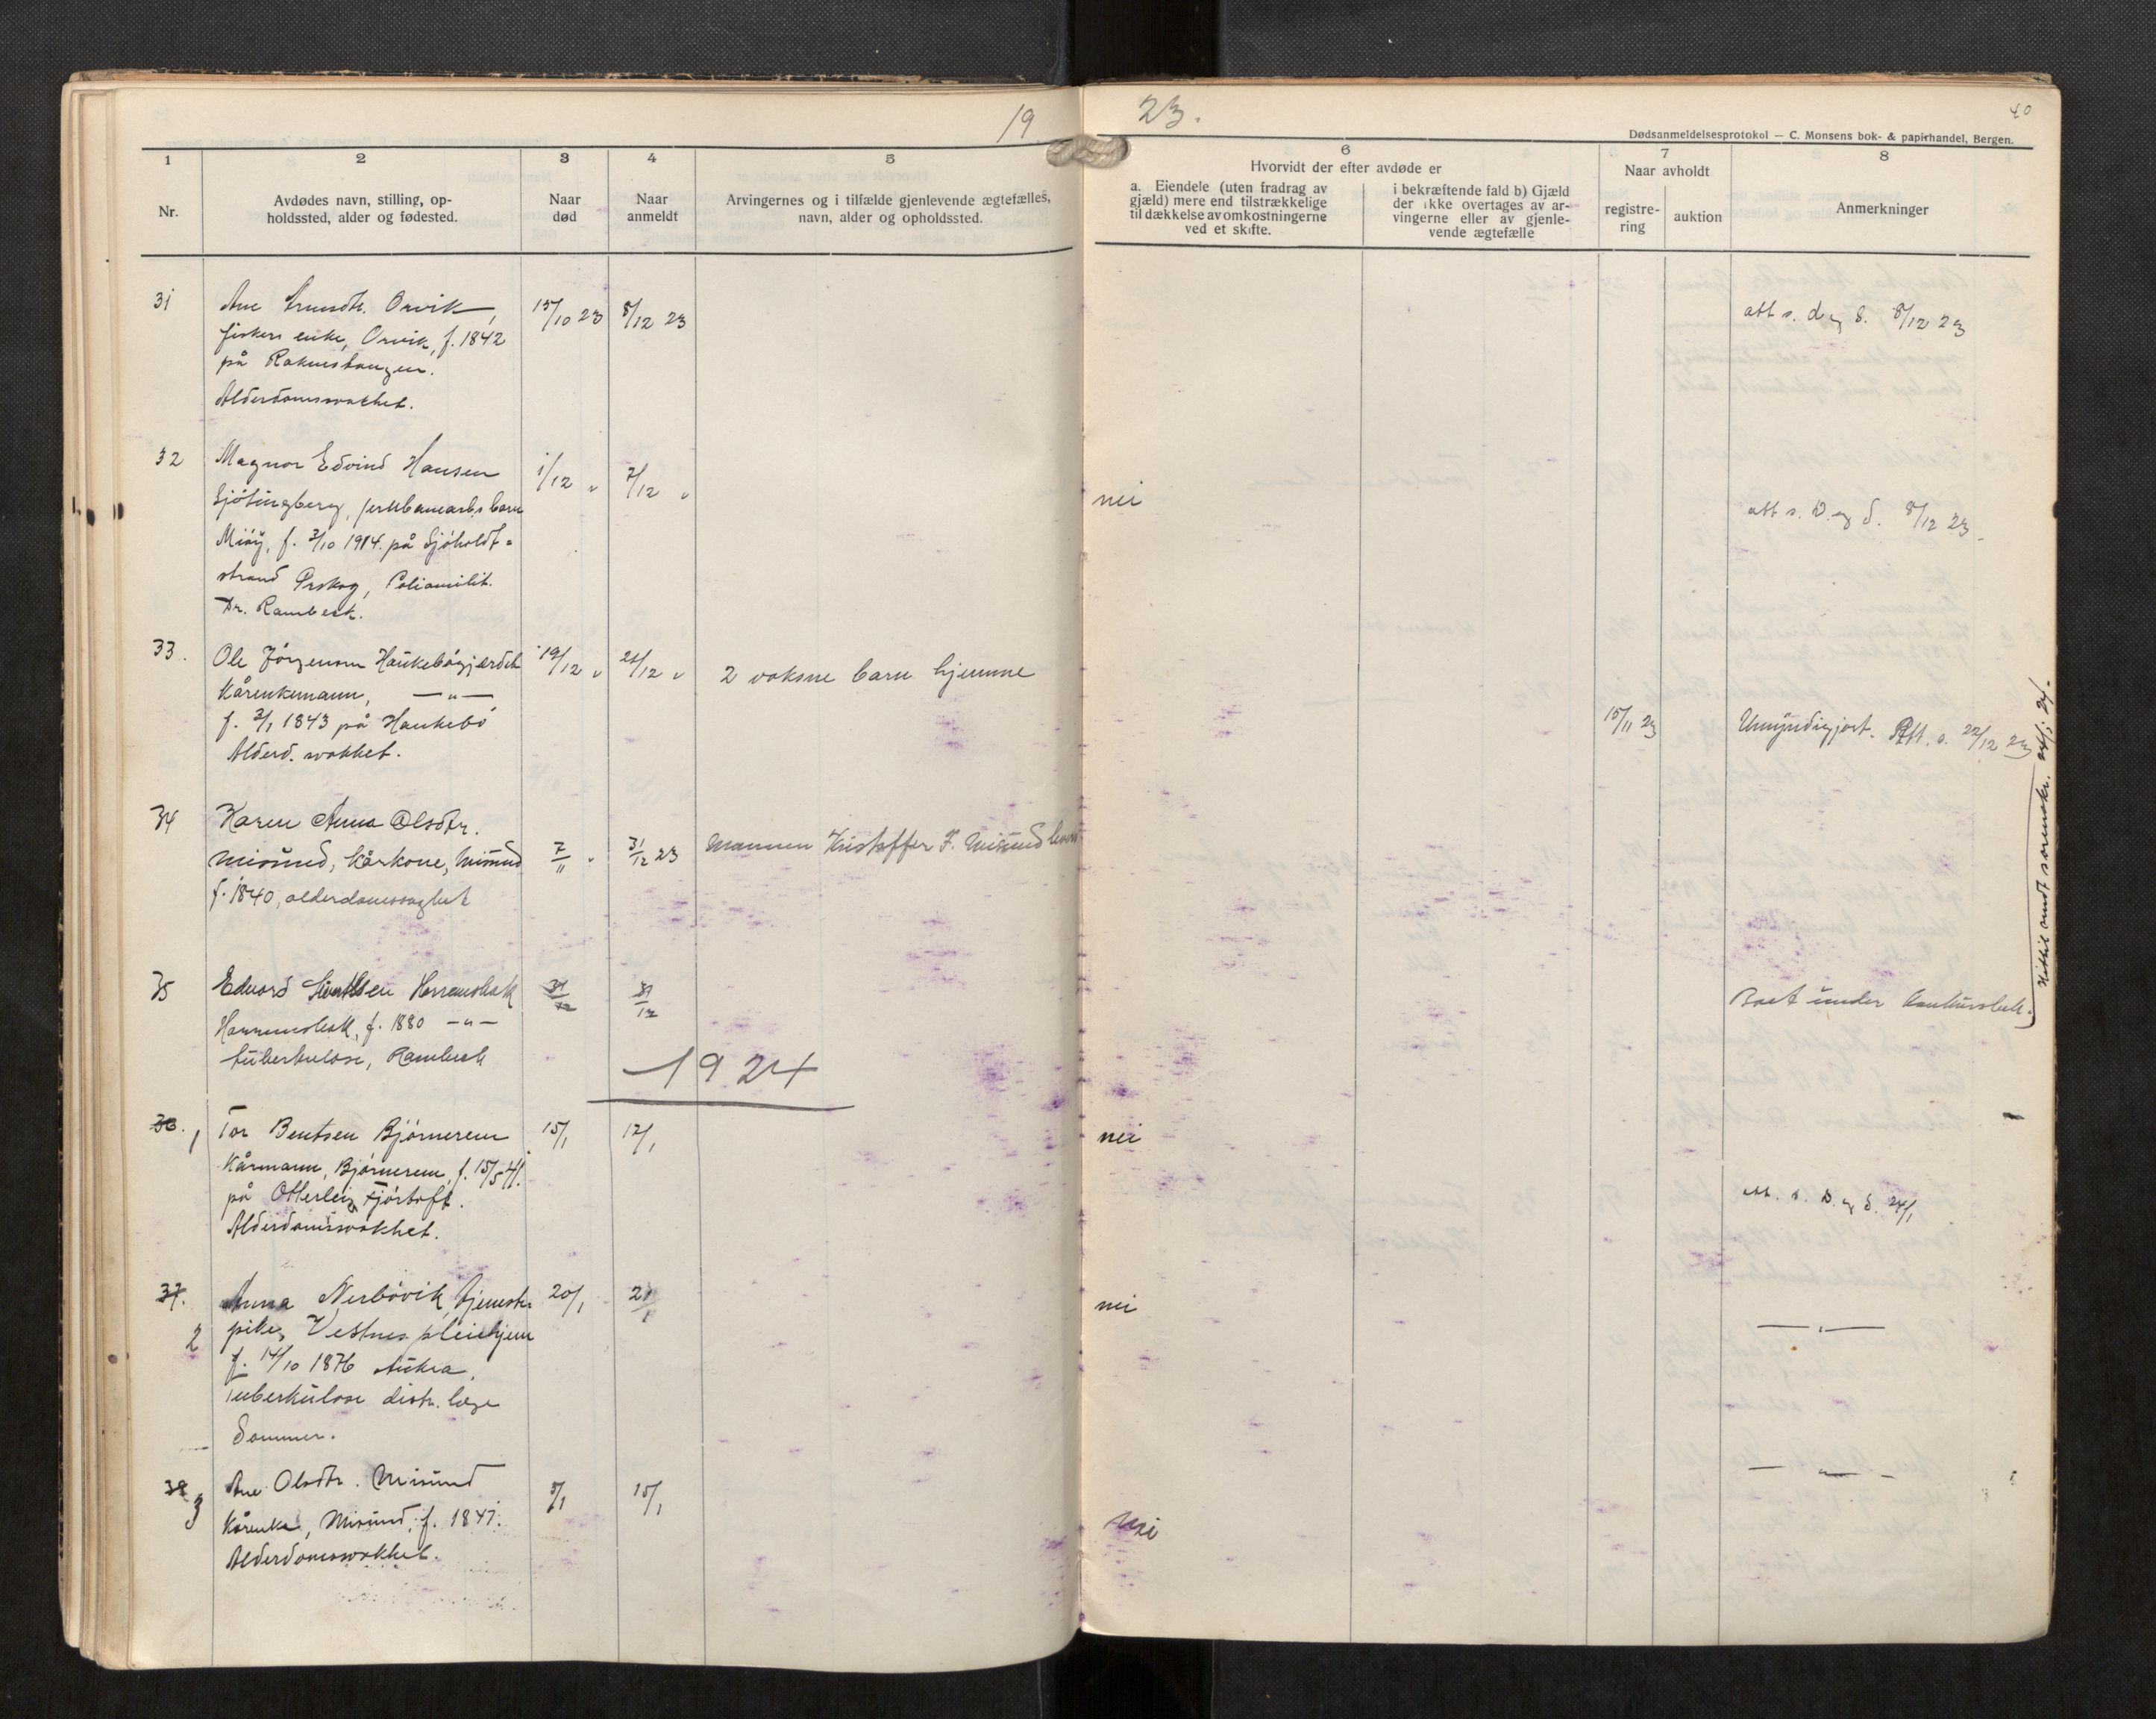 19 23.
40
Dødsanmeldelsesprotokol — C. Monsens bok- & papirhandel, Bergen.
1 2 3 4 5 6 7 8
Nr.
Avdødes navn, stilling, op-
holdssted, alder og fødested.
Naar
død
Naar
anmeldt
Arvingernes og i tilfælde gjenlevende ægtefælles,
navn, alder og opholdssted.
Hvorvidt der efter avdøde er
a. Eiendele (uten fradrag av
gjæld) mere end tilstrækkelige
til dækkelse av omkostningerne
ved et skifte.
i bekræftende fald b) Gjæld
der ikke overtages av ar-
vingerne eller av gjenle-
vende ægtefælle
Naar avholdt
registre-
ring
auktion
Anmerkninger
31 Ane Orvik, 15/10 23 8/12 23
fiskers enke, Orvik, f. 1842
på Raknestangen.
Alderdomssvakhet.
att s. D og S. 8/12 23
32 Magnor Edvind Hansen 1/12 " 7/12 "
Sjötingberg, barn nei
Miöy, f. 3/10 1914. på Sjöholdt-
strand Örskog, Poliomilit.
Dr. Rambeck.
att s. D. og S. 8/12 23
33. Ole Jörgensen Haukebögjerdet 19/12 " 21/12 " 2 voksne barn hjemme
Kårenkemann, —"—
f. 3/1 1843 på Haukebö
Alderd. svakhet.
15/11 23 Umyndigjort. Att. s. 22/12 23
34 Karen Anna Olsdtr.
Misund, kårkone, Misund 7/11 " 31/12 23 Mannen Kristoffer F. Misund lever
f. 1840, alderdomssvaghet
35 Edvard Sivertsen Harremsbak 31/12 31/12
Harremsbak, f. 1880 —"—
tuberkulose, Rambech
Boet under konkursbeh.
24/1 24.
1924
36. 1 Tor Bentsen Björnerem 15/1 17/1 nei
Kårmann, Björnerem, f. 15/5 41.
på Otterlei, Fjörtoft.
Alderdomssvakhet.
att. s. D. og S. 24/1
37. 2 Anna Nerbövik, tjeneste 20/1 21/1 nei
pike, Vestnes pleiehjem
f. 14/10 1876 Aukra,
Tuberkulose distr. læge
Sommer.
—"—
38 3 Ane Olsdtr. Misund 5/1 15/1 nei
Kårenke, Misund, f. 1847.
Alderdomssvakhet.
—"—